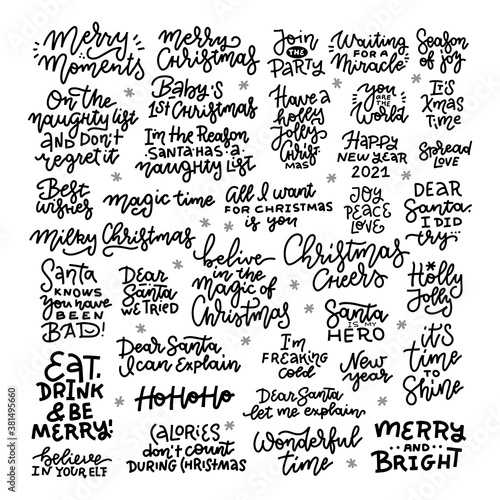 Merry
Moments
Merry
Christmas
Join
THE
PARTY
Waiting
FOR A
Miracle
Season
of joy
On the
naughty list
AND DON't
regret it
Baby's
1st Christmas
Have a
holly
Jolly
Christ
mas
you
ARE THE
World
It's
Xmas
Time
I'm the Reason
SANTA HAS A
naughty List
Happy
NEW YEAR
2021
Spread
LOVE
Best
wishes
magic time
All I want
FOR CHRISTMAS
is you
JOY
PEACE
LOVE
DEAR
Santa.
I DID
try
Milky Christmas
belive
in the
magic of
Christmas
Christmas
CHEERS
Santa
KNOWS
you have
BEEN
BAD!
Dear
Santa
WE TRIED
Holly
Jolly
Santa
IS MY
HERO
Dear Santa,
I can Explain
I'm
FREAKING
cold
New
year
it's
time
TO
Shine
EAT,
DRINK
& BE
MERRY!
HoHoHo
Dear Santa
let me explain
believe
IN YOUR ELF
CALORIES
don't count
DURING CHRISTMAS
Wonderful
time
MERRY
AND
BRIGHT
Adobe Stock | #381495660